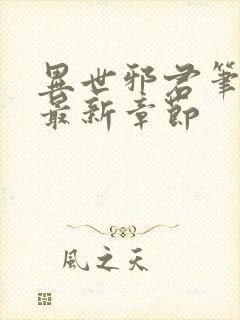 異世邪君筆
最新章節
風之天